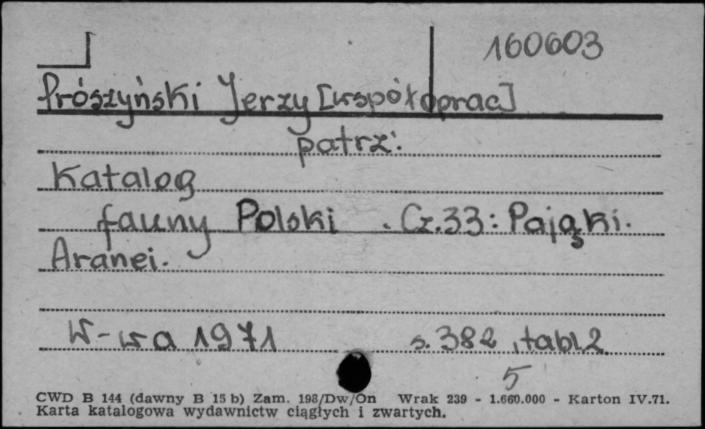 160603
Prószyński Jerzy [współoprac]
patrz:
Katalog
fauny Polski . Cz.33: Pająki.
Aranei.
W-wa 1971 s. 382, tabl.2
5
CWD B 144 (dawny B 15 b) Zam. 198/Dw/On Wrak 239 - 1.660.000 - Karton IV.71.
Karta katalogowa wydawnictw ciągłych i zwartych.